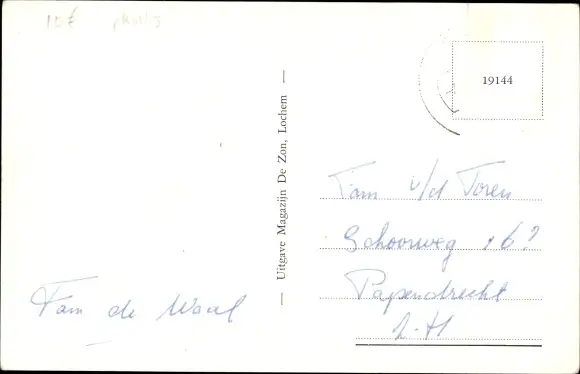 10€
Uitgave Magazijn De Zon, Lochem
19144
Fam v/d Toren
Schoorweg 162
Papendrecht
Z-H
Fam de Waal